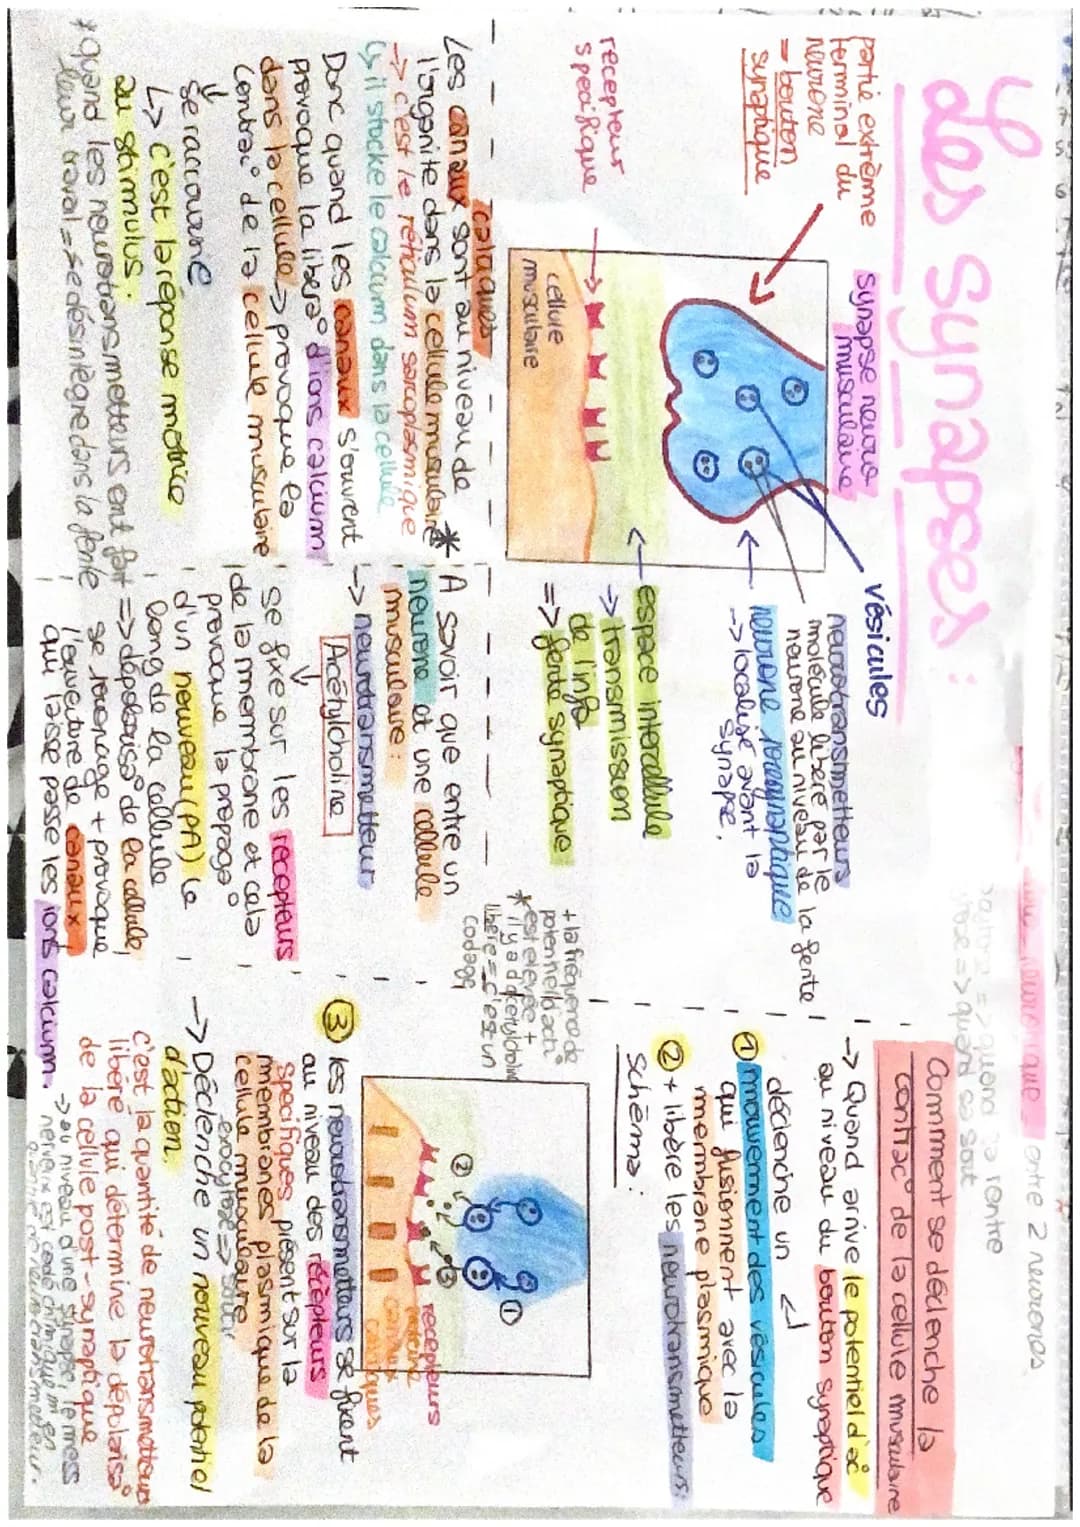 Les Synapses :
partie extrême
terminal du
neurone
= bouton
synaptique
synapse neuro
musculaire
vésicules
neurotransmetteurs
molécule libéré par le
neurone au niveau de la fente
neurone présynaptique
-> localisé avant la
synapse.
récepteur
spécifique
cellule
musculaire
espace intercellule
-> transmission
de l'info
=> fente synaptique
Les canaux calciques sont au niveau de
l'organite dans la cellule musculaire *
-> c'est le réticulum sarcoplasmique
↳ il stocke le calcium dans la cellule
Donc quand les canaux s'ouvrent
provoque la libera° d'ions calcium
dans la cellule -> provoque la
contrac° de la cellule musculaire
⇓
se raccourcie
↳ c'est la réponse motrice
au stimulus.
* quand les neurotransmetteurs ont fait
leur travail = se désintègre dans la fente
A savoir que entre un
neurone et une cellule
musculaire :
-> neurotransmetteur
Acétylcholine
se fixe sur les récepteurs
de la membrane et cela
provoque la propaga°
d'un nouveau (PA) le
long de la cellule
=> dépolarisa° de la cellule,
se propage + provoque
l'ouverture de canaux
qui laisse passe les ions calcium.
entre 2 neurones
Comment se déclenche la
contrac° de la cellule musculaire
-> Quand arrive le potentiel d'ac°
au niveau du bouton synaptique
déclenche un
① mouvement des vésicules
qui fusionnent avec la
membrane plasmique
② + libère les neurotransmetteurs
schéma :
+ la fréquence de
potentiel d'act°
* est élevée +
il y a d'acétylcholine
libéré = c'est un
codage
①
②
③
recepteurs
canaux
calciques
③ les neurotransmetteurs se fixent
au niveau des récepteurs
spécifiques présent sur la
membranes plasmique de la
cellule musculaire
exocytose => sortir
-> Déclenche un nouveau potentiel
d'action
c'est la quantité de neurotransmetteurs
libéré qui détermine la dépolarisa°
de la cellule post-synaptique
-> au niveau d'une synapse, le mess
nerveux est codé chimiquem en